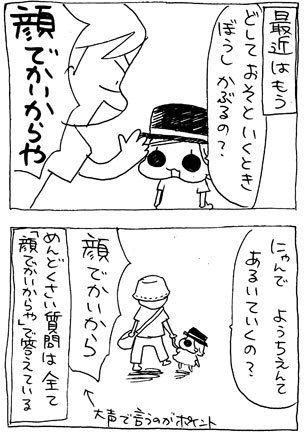 最近はもう
どしておそといくとき
ぼうしかぶるの?
顔でかいからや
にゃんで ようちえんて
あるいていくの?
顔でかいから
めんどくさい質問は全て
「顔でかいからや」で答えている
大声で言うのがポイント